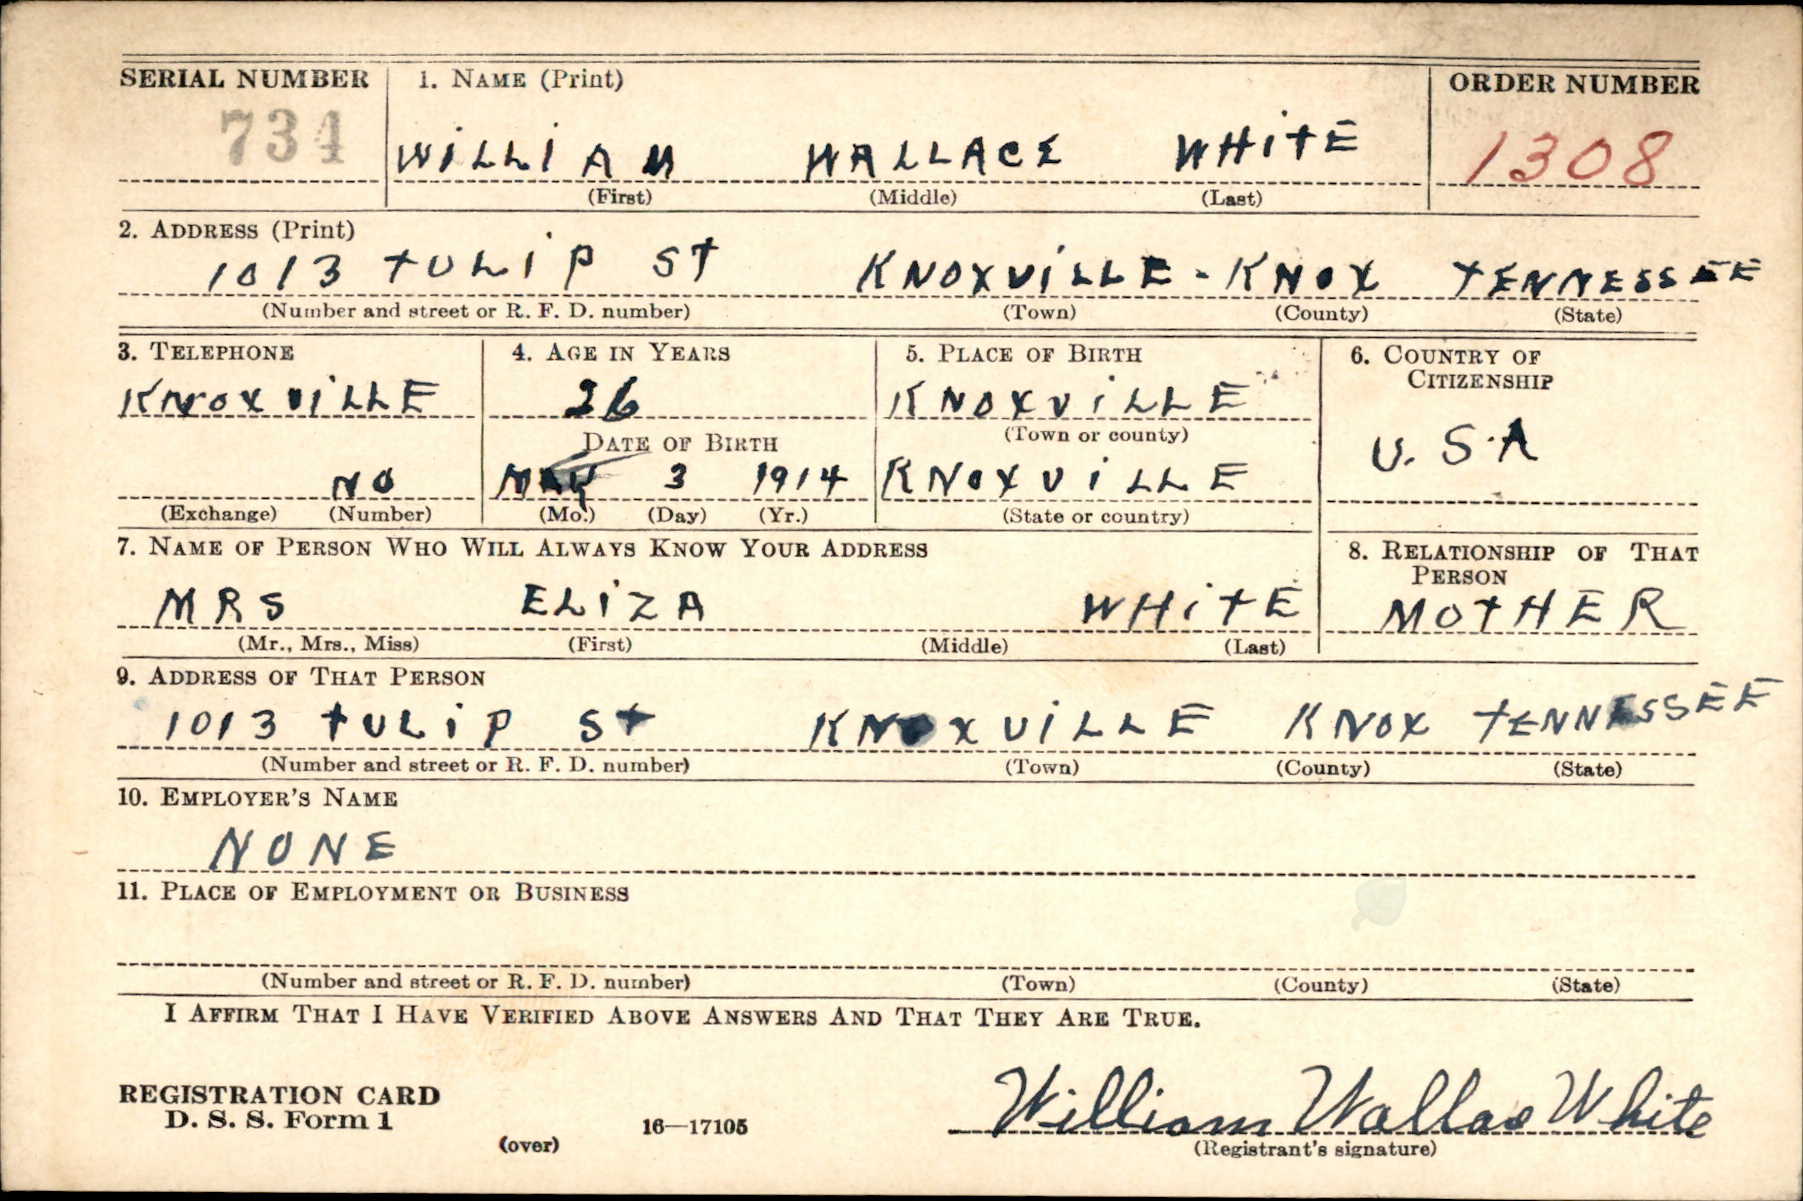 SERIAL NUMBER 1. NAME (Print) ORDER NUMBER
734 WILLIAM WALLACE WHITE 1308
(First) (Middle) (Last)
2. ADDRESS (Print)
1013 TULIP ST KNOXVILLE - KNOX TENNESSEE
(Number and street or R. F. D. number) (Town) (County) (State)
3. TELEPHONE 4. AGE IN YEARS 5. PLACE OF BIRTH 6. COUNTRY OF CITIZENSHIP
KNOXVILLE 26 KNOXVILLE
DATE OF BIRTH (Town or county) U.S.A
NO MAY 3 1914 KNOXVILLE
(Exchange) (Number) (Mo.) (Day) (Yr.) (State or country)
7. NAME OF PERSON WHO WILL ALWAYS KNOW YOUR ADDRESS 8. RELATIONSHIP OF THAT PERSON
MRS ELIZA WHITE MOTHER
(Mr., Mrs., Miss) (First) (Middle) (Last)
9. ADDRESS OF THAT PERSON
1013 TULIP ST KNOXVILLE KNOX TENNESSEE
(Number and street or R. F. D. number) (Town) (County) (State)
10. EMPLOYER'S NAME
NONE
11. PLACE OF EMPLOYMENT OR BUSINESS
(Number and street or R. F. D. number) (Town) (County) (State)
I AFFIRM THAT I HAVE VERIFIED ABOVE ANSWERS AND THAT THEY ARE TRUE.
REGISTRATION CARD
D. S. S. Form 1 William Wallac White
(over) 16—17105 (Registrant's signature)